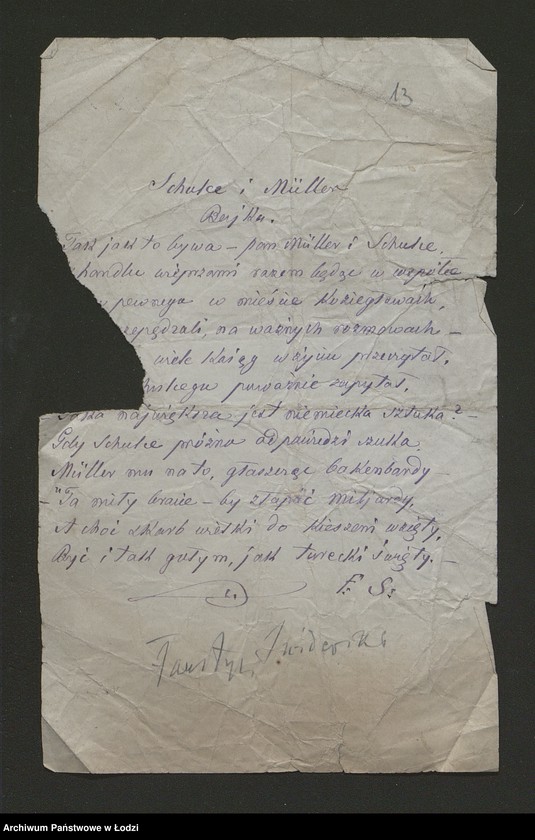 13
Schulce i Müller
Bajka.
Tak jak to bywa – pan Müller i Schulce,
handlu wieprzami razem będąc w wspólce
pewnego w mieście Koziegłowach,
spędzali, na ważnych rozmowach –
wiele ksiąg w życiu przeczytał,
poważnie zapytał,
największa jest niemiecka sztuka? –
Gdy Schulce próżno odpowiedzi szuka
Müller mu na to, głaszcząc bakenbardy –
– "Ta miły bracie – by złapić miljardy,
A choć skarb wielki do kieszeni wzięty,
Być i tak gołym, jak turecki święty. –
F. S.
Faustyn Świderski
Archiwum Państwowe w Łodzi